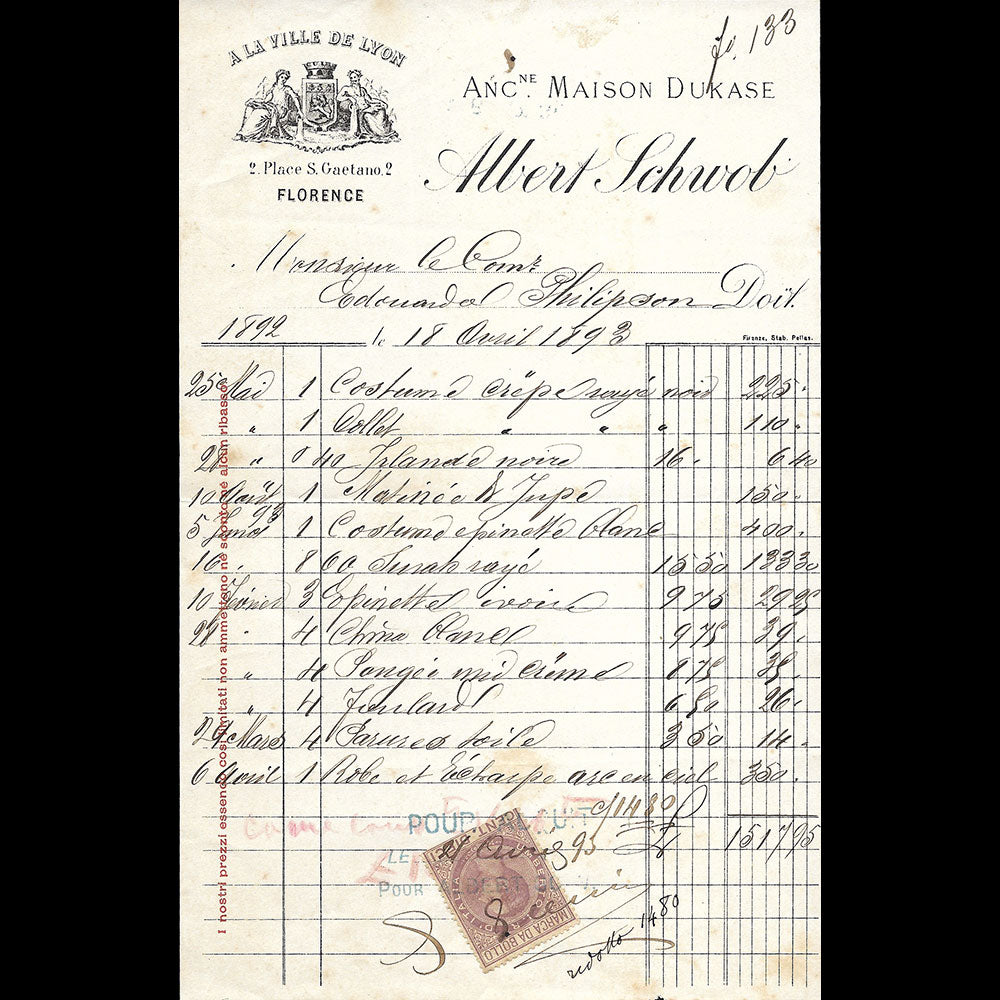 fo. 133
A LA VILLE DE LYON
ANC.NE MAISON DUKASE
Albert Schwob
2. Place S. Gaetano. 2
FLORENCE
Monsieur le Comte
Edouard Philipson Doit.
1892 le 18 Avril 1893
Firenze, Stab. Pellas.
25 Mai 1 Costume crêpe rayé noir 225 "
" 1 Collet " " " 110 "
" 0 40 Irlande noire 16 " 6 40
10 Août 1 Matinée & Jupe 150 "
5 Janv 93 1 Costume epinette blanc 400 "
16 " 8 60 Surah rayé 15 50 133 30
10 Février 3 Epinette ivoire 9 75 29 25
" 4 China blanc 9 75 39 "
" 4 Pongée mi crême 8 75 35 "
" 4 Foulard 6 50 26 "
29 Mars 4 Parures toile 3 50 14 "
6 Avril 1 Robe et Écharpe arc en ciel 350 "
1480
1517 95
POUR
LE
POUR
Avril 93
CENT.
UMBERTO I
D'ITALIA
MARCA DA BOLLO
ridotto 1480
I nostri prezzi essendo così limitati non ammettono nè sconto nè alcun ribasso